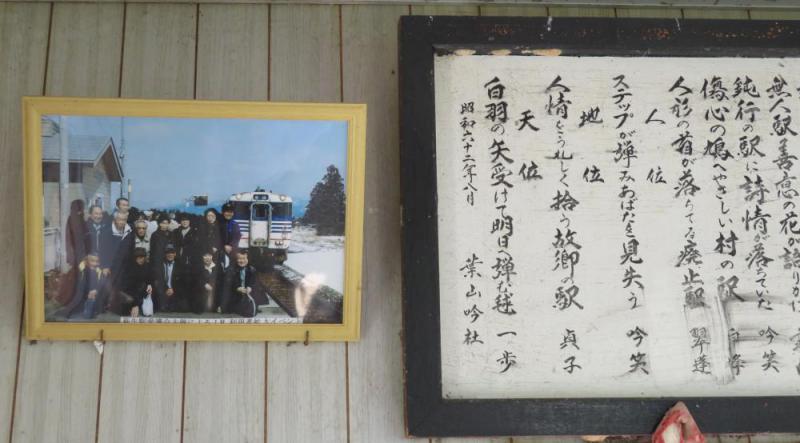 無人駅善意の花が語り
鈍行の駅に詩情が落ちていた 吟笑
傷心の鳩へやさしい村の駅
人形の首が落ちてる廃止駅 翠逢
人位
ステップが弾みあばたを見失う 吟笑
地位
人情をうれしく拾う故郷の駅 貞子
天位
白羽の矢受けて明日へ弾む毬 一歩
昭和六十二年八月 葉山吟社